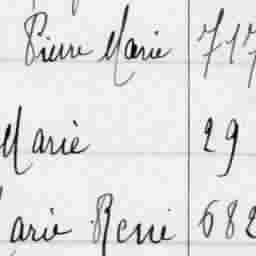 Pierre Marie 717
Marie 29
Marie René 682